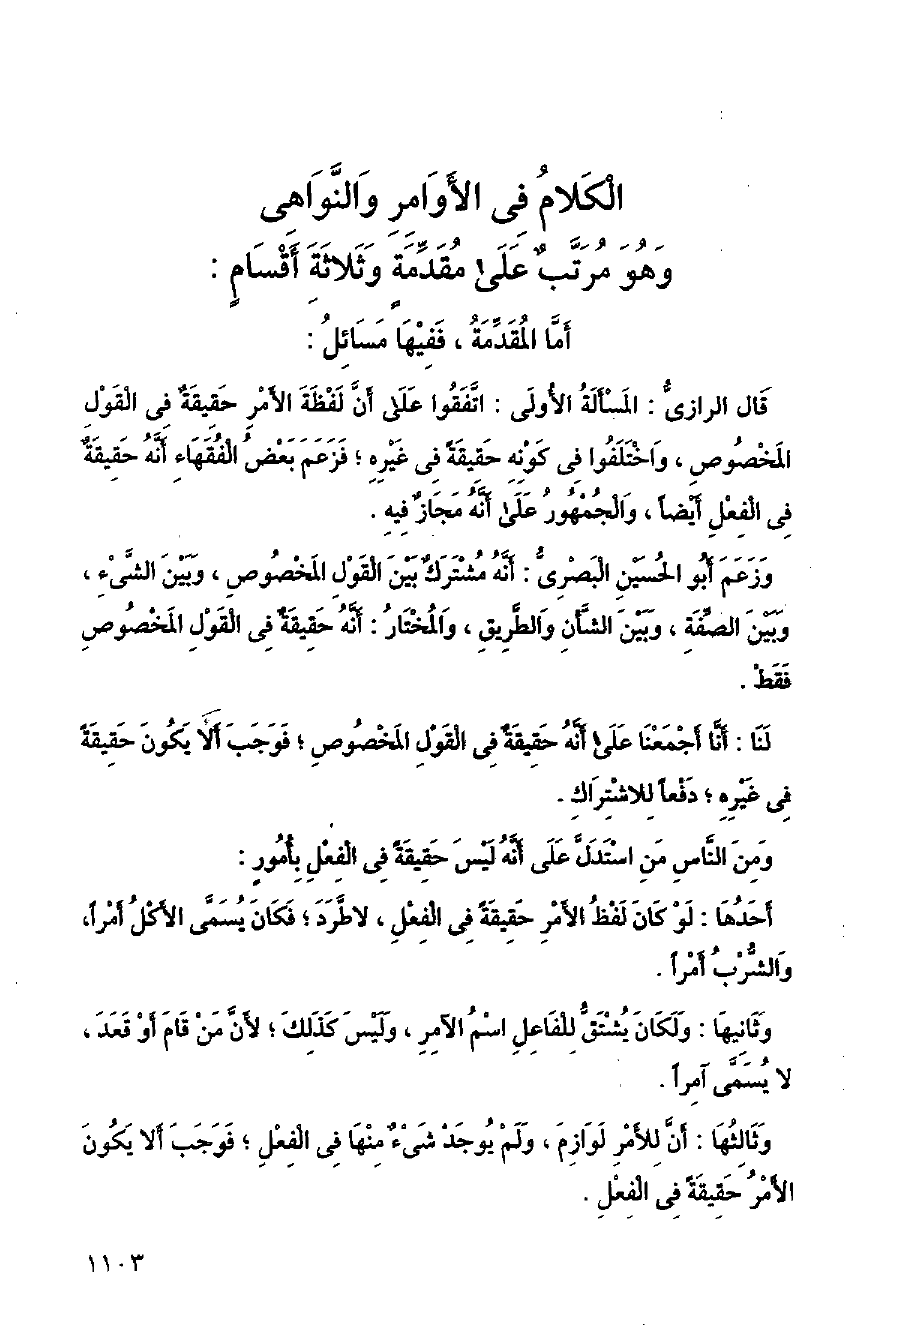 الْكَلامُ فِى الأَوَامِرِ وَالنَّوَاهِى
وَهُوَ مُرَتَّبٌ عَلَى مُقَدِّمَةٍ وَثَلاثَةِ أَقْسَامٍ :
أَمَّا المُقَدِّمَةُ ، فَفِيْهَا مَسَائِلُ :
قَال الرازىُّ : المَسْأَلَةُ الأُولَى : اتَّفَقُوا عَلَى أَنَّ لَفْظَةَ الأَمْرِ حَقِيقَةٌ فِى الْقَوْلِ
المَخْصُوصِ ، وَاخْتَلَفُوا فِى كَوْنِهِ حَقِيقَةً فِى غَيْرِهِ ؛ فَزَعَمَ بَعْضُ الْفُقَهَاءِ أَنَّهُ حَقِيقَةٌ
فِى الْفِعْلِ أَيْضاً ، وَالْجُمْهُورُ عَلَى أَنَّهُ مَجَازٌ فِيهِ .
وَزَعَمَ أَبُو الحُسَيْنِ الْبَصْرِىُّ : أَنَّهُ مُشْتَرَكٌ بَيْنَ الْقَوْلِ المَخْصُوصِ ، وَبَيْنَ الشَّىْءِ ،
وَبَيْنَ الصِّفَةِ ، وَبَيْنَ الشَّأْنِ وَالطَّرِيقِ ، وَالمُخْتَارُ : أَنَّهُ حَقِيقَةٌ فِى الْقَوْلِ المَخْصُوصِ
فَقَطْ .
لَنَا : أَنَّا أَجْمَعْنَا عَلَى أَنَّهُ حَقِيقَةٌ فِى الْقَوْلِ المَخْصُوصِ ؛ فَوَجَبَ أَلا يَكُونَ حَقِيقَةً
فِى غَيْرِهِ ؛ دَفْعاً لِلاشْتِرَاكِ .
وَمِنَ النَّاسِ مَنِ اسْتَدَلَّ عَلَى أَنَّهُ لَيْسَ حَقِيقَةً فِى الْفِعْلِ بِأُمُورٍ :
أَحَدُهَا : لَوْ كَانَ لَفْظُ الأَمْرِ حَقِيقَةً فِى الْفِعْلِ ، لاطَّرَدَ ؛ فَكَانَ يُسَمَّى الأَكْلُ أَمْراً،
وَالشُّرْبُ أَمْراً .
وَثَانِيهَا : وَلَكَانَ يُشْتَقُّ لِلْفَاعِلِ اسْمُ الآمِرِ ، وَلَيْسَ كَذَلِكَ ؛ لأَنَّ مَنْ قَامَ أَوْ قَعَدَ ،
لا يُسَمَّى آمِراً .
وَثَالِثُهَا : أَنَّ لِلأَمْرِ لَوَازِمَ ، وَلَمْ يُوجَدْ شَىْءٌ مِنْهَا فِى الْفِعْلِ ؛ فَوَجَبَ أَلا يَكُونَ
الأَمْرُ حَقِيقَةً فِى الْفِعْلِ .
١١٠٣